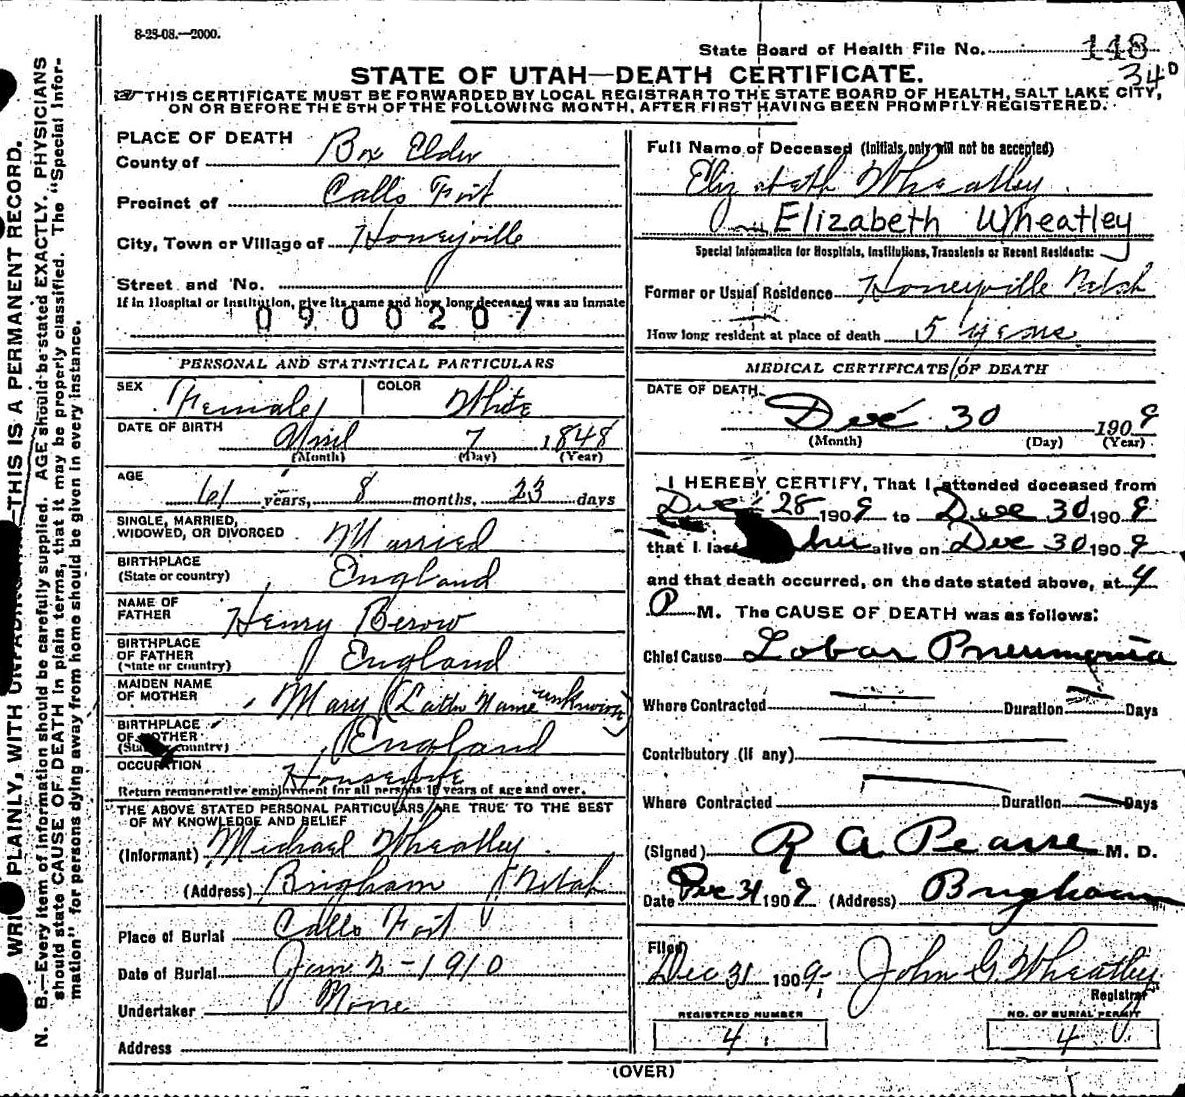 8-23-08.—2000.
State Board of Health File No. 148
34D
STATE OF UTAH—DEATH CERTIFICATE.
THIS CERTIFICATE MUST BE FORWARDED BY LOCAL REGISTRAR TO THE STATE BOARD OF HEALTH, SALT LAKE CITY,
ON OR BEFORE THE 5TH OF THE FOLLOWING MONTH, AFTER FIRST HAVING BEEN PROMPTLY REGISTERED.
PLACE OF DEATH
County of Box Elder
Precinct of Calls Fort
City, Town or Village of Honeyville
Street and No.
If in Hospital or Institution, give its name and how long deceased was an inmate
0900207
PERSONAL AND STATISTICAL PARTICULARS
SEX Female COLOR White
DATE OF BIRTH April 7 1848
(Month) (Day) (Year)
AGE 61 years, 8 months, 23 days
SINGLE, MARRIED,
WIDOWED, OR DIVORCED Married
BIRTHPLACE
(State or country) England
NAME OF
FATHER Henry Berow
BIRTHPLACE
OF FATHER
(State or country) England
MAIDEN NAME
OF MOTHER Mary (Latter Name unknown)
BIRTHPLACE
OF MOTHER
(State or country) England
OCCUPATION Housewife
Return remunerative employment for all persons 10 years of age and over.
THE ABOVE STATED PERSONAL PARTICULARS ARE TRUE TO THE BEST
OF MY KNOWLEDGE AND BELIEF
(Informant) Michael Wheatley
(Address) Brigham Utah
Place of Burial Calls Fort
Date of Burial Jan 2-1910
Undertaker None
Address
Full Name of Deceased (Initials only will not be accepted)
Elizabeth Wheatley
Elizabeth Wheatley
Special Information for Hospitals, Institutions, Transients or Recent Residents:
Former or Usual Residence Honeyville Utah
How long resident at place of death 5 years
MEDICAL CERTIFICATE OF DEATH
DATE OF DEATH.
Dec 30 1909
(Month) (Day) (Year)
I HEREBY CERTIFY, That I attended deceased from
Dec 28 1909 to Dec 30 1909
that I last her alive on Dec 30 1909
and that death occurred, on the date stated above, at 4
P M. The CAUSE OF DEATH was as follows:
Chief Cause Lobar Pneumonia
Where Contracted Duration Days
Contributory (if any)
Where Contracted Duration Days
(Signed) R A Pearse M. D.
Date Dec 31 1909 (Address) Brigham
Filed
Dec 31 1909 John G. Wheatley
Registrar
REGISTERED NUMBER NO. OF BURIAL PERMIT
4 4
(OVER)
WRITE PLAINLY, WITH UNFADING INK—THIS IS A PERMANENT RECORD.
N. B.—Every item of information should be carefully supplied. AGE should be stated EXACTLY. PHYSICIANS
should state CAUSE OF DEATH in plain terms, that it may be properly classified. The "Special Infor-
mation" for persons dying away from home should be given in every instance.